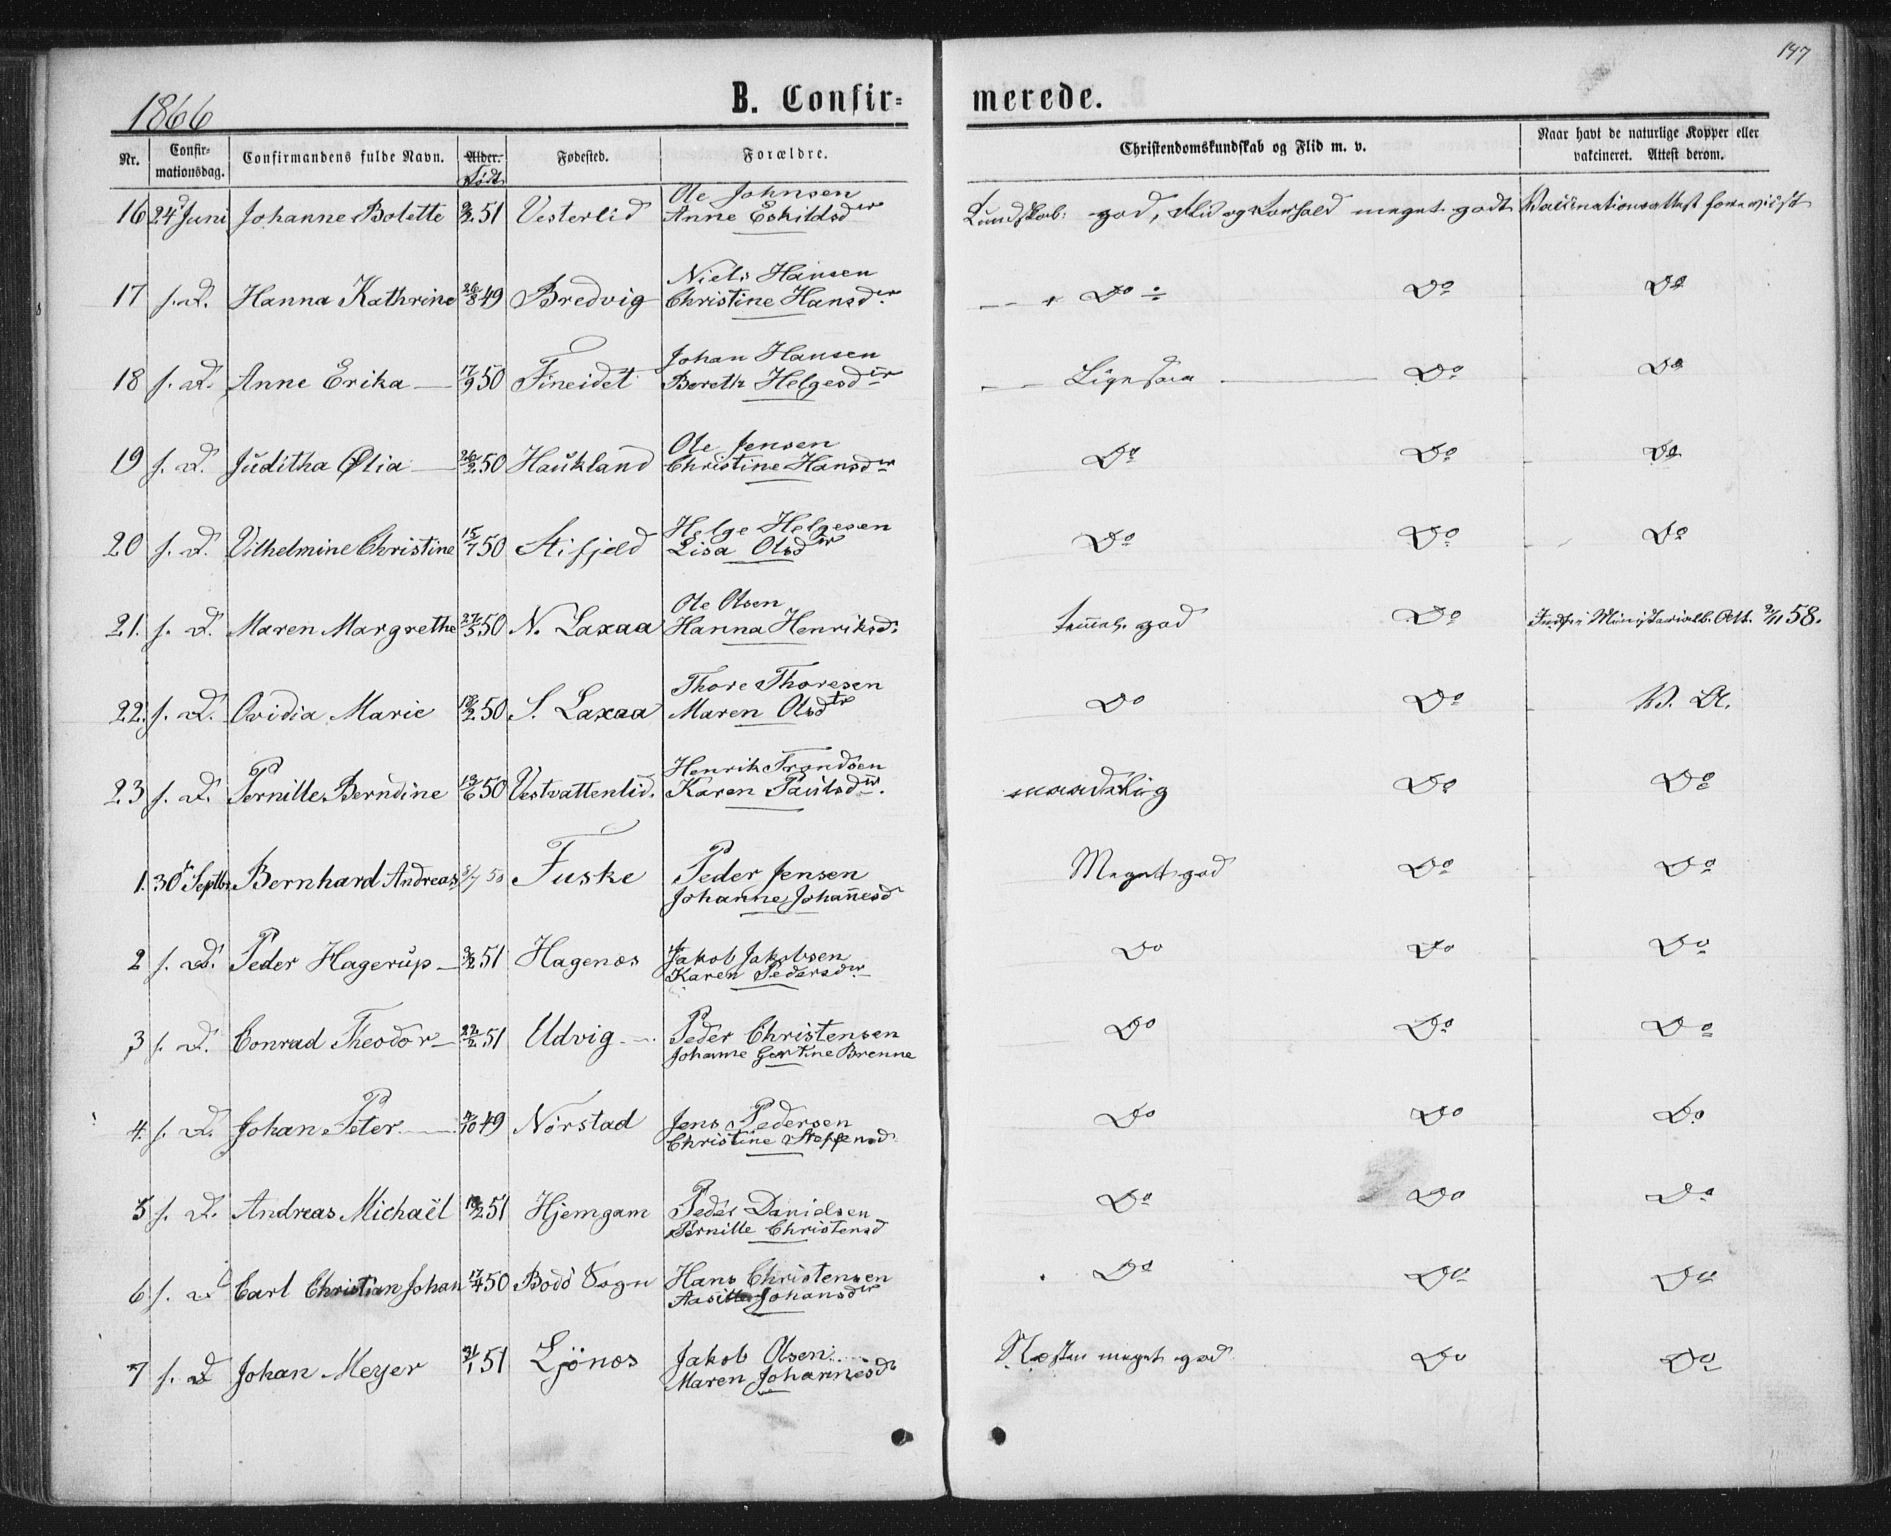 147
1866
B. Confirmerede.
Nr. Confirmationsdag. Confirmandens fulde Navn. Alder. Født Fødested. Forældre. Christendomskundskab og Flid m. v. Naar havt de naturlige Kopper eller vakcineret. Attest derom.
16 24d Juni Johanne Bolette 51 Vesterlid Ole Johnsen
Anne Eskildsdtr Kundskab: god, Flid og Forhold meget godt Vaccinationsattest forevist
17 s. D. Hanna Kathrine 26/8 49 Bredvig Niels Hansen
Christine Hansdtr Do ÷ Do Do
18 s. D. Anne Erika 17/9 50 Fineidet Johan Hansen
Bereth Helgesdtr Ligesaa Do Do
19 s. D. Juditha Olia 26/2 50 Haukland Ole Jensen
Christine Hansdtr Do Do Do
20 s. D. Vilhelmine Christine 15/7 50 Stifjeld Helge Helgesen
Lisa Olsdtr Do Do Do
21. s. D. Maren Margrethe 27/5 50 N. Laxaa Ole Olsen
Hanna Henriksd. temmel. god Do Indf. i Ministerialb. Att. 2/11 58.
22. s. D. Ovidia Marie 50 S. Laxaa Thore Thoresen
Maren Olsdtr Do Do V. A.
23 s. D. Pernille Berndine 13/6 50 Vestvattenlid. Henrik Trondsen
Karen Paulsdtr. maadelig Do Do
1. 30te Septbr. Bernhard Andreas 50 Fuske Peder Jensen
Johanne Johannesd Meget god Do Do
2 s. D. Peder Hagerup 51 Hagenæs Jakob Jakobsen
Karen Pedersdtr Do Do Do
3 s. D. Conrad Theodor 22/2 51 Udvig Peder Christensen
Johanne Gertine Brenne Do Do Do
4. s. D. Johan Peter 49 Nørstad Jens Pedersen
Christine Steffensd. Do Do Do
5 s. D. Andreas Michaël 51 Hjemgam Peder Danielsen
Pernille Christensd Do Do Do
6 s. D Carl Christian Johan 17/4 50 Bodö Sogn Hans Christensen
Johansdtr Do Do Do
7 s. D Johan Meyer 31/1 51 Ljönæs Jakob Olsen
Maren Johannesd. Næsten meget god Do Do